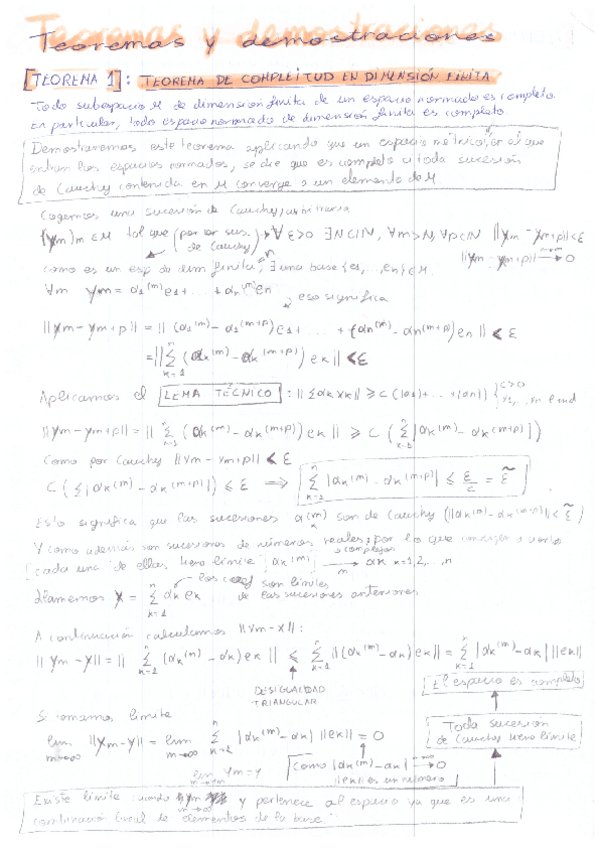 Teoremas y demostraciones
[TEOREMA 1]: TEOREMA DE COMPLETITUD EN DIMENSIÓN FINITA
Todo subespacio M de dimensión finita de un espacio normado es completo.
En particular, todo espacio normado de dimensión finita es completo.
Demostraremos este teorema aplicando que un espacio métrico, en el que
entran los espacios normados, se dice que es completo si toda sucesión
de Cauchy contenida en M converge a un elemento de M
Cogemos una sucesión de Cauchy arbitraria
(ym)m ∈ M tal que (por ser suc. de Cauchy) → ∀ε>0 ∃N∈ℕ, ∀m>N, ∀p∈ℕ ||ym - ym+p||<ε
||ym - ym+p|| → 0
como es un esp de dim finita, ∃ una base {e1, ..., en} ∈ M.
∀m ym = α1^(m) e1 + ... + αn^(m) en
eso significa
||ym - ym+p|| = || (α1^(m) - α1^(m+p)) e1 + ... + (αn^(m) - αn^(m+p)) en || < ε
= || Σ_{k=1}^n (αk^(m) - αk^(m+p)) ek || < ε
Aplicamos el [LEMA TÉCNICO]: || Σ αk xk || ≥ C (|α1| + ... + |αn|) } C>0
||ym - ym+p|| = || Σ_{k=1}^n (αk^(m) - αk^(m+p)) ek || ≥ C ( Σ_{k=1}^n |αk^(m) - αk^(m+p)| )
Como por Cauchy ||ym - ym+p|| < ε
C ( Σ |αk^(m) - αk^(m+p)| ) ≤ ε ⟹ Σ_{k=1}^n |αk^(m) - αk^(m+p)| ≤ ε/c = ε̃
Esto significa que las sucesiones αk^(m) son de Cauchy (||αk^(m) - αk^(m+p)|| < ε̃)
Y como además son sucesiones de números reales, por lo que
o complejos
cada una de ellas tiene límite αk^(m) →_m αk k=1,2,...,n
Llamemos y = Σ_{k=1}^n αk ek
son límites
de las sucesiones anteriores
A continuación calculamos ||ym - y||:
||ym - y|| = || Σ_{k=1}^n (αk^(m) - αk) ek || ≤ Σ_{k=1}^n ||(αk^(m) - αk) ek|| = Σ_{k=1}^n |αk^(m) - αk| ||ek||
DESIGUALDAD
TRIANGULAR
El espacio es completo
Si tomamos límite
Toda sucesión
de Cauchy tiene límite
lim_{m→∞} ||ym - y|| = lim_{m→∞} Σ_{k=1}^n |αk^(m) - αk| ||ek|| = 0
como |αk^(m) - αk| → 0
||ek|| es un número
lim_{m→∞} ym = y
Existe límite cuando m→∞ y pertenece al espacio ya que es una
combinación lineal de elementos de la base